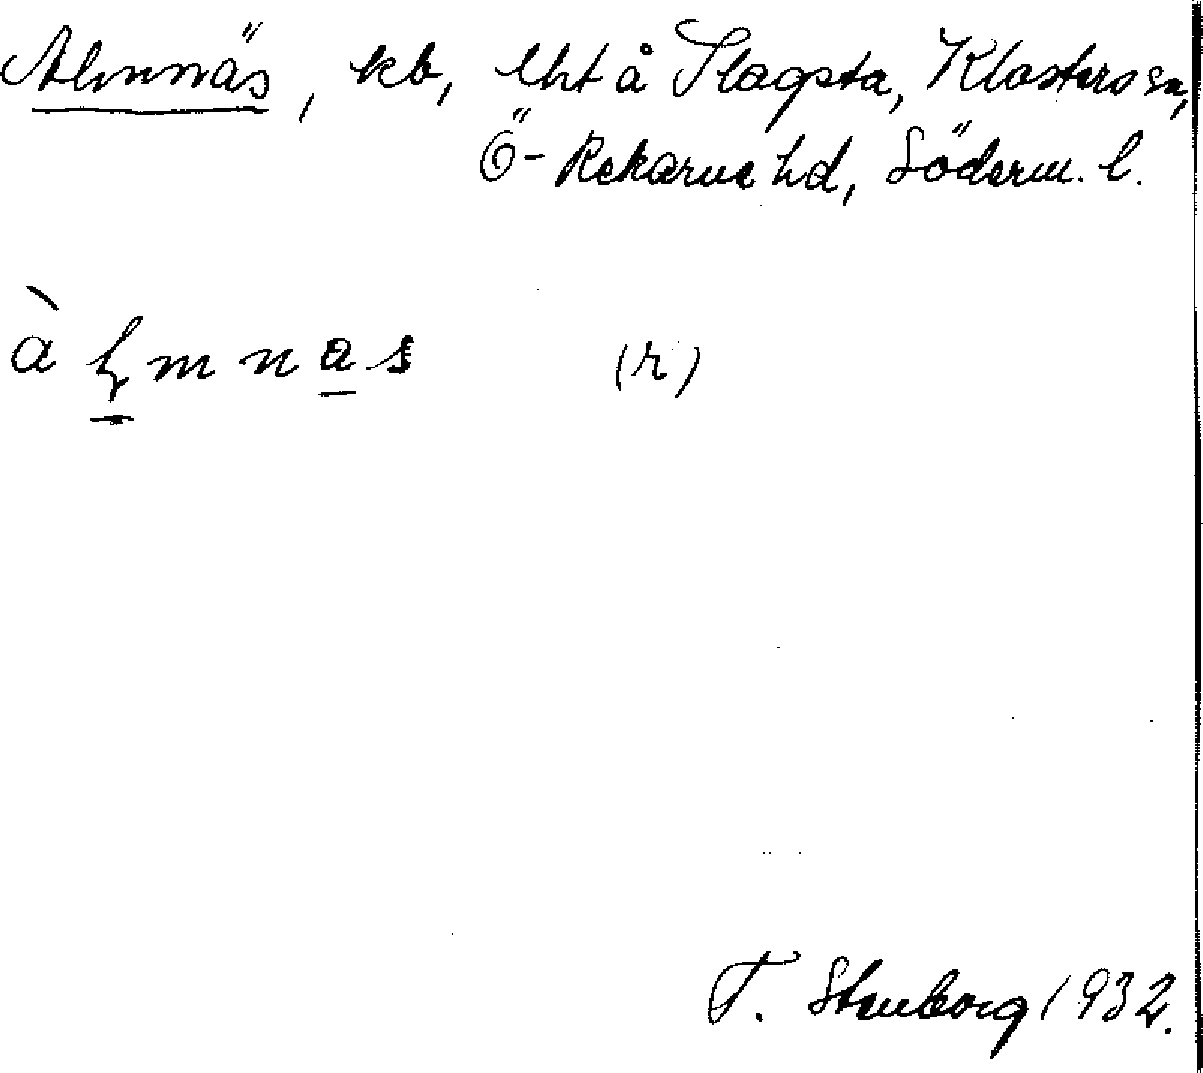 Almnäs, kb, lht å Slagsta, Klosters sn,
Ö-Rekarne hd, Söderm. l.
àlmnas (r)
T. Stenborg 1932.